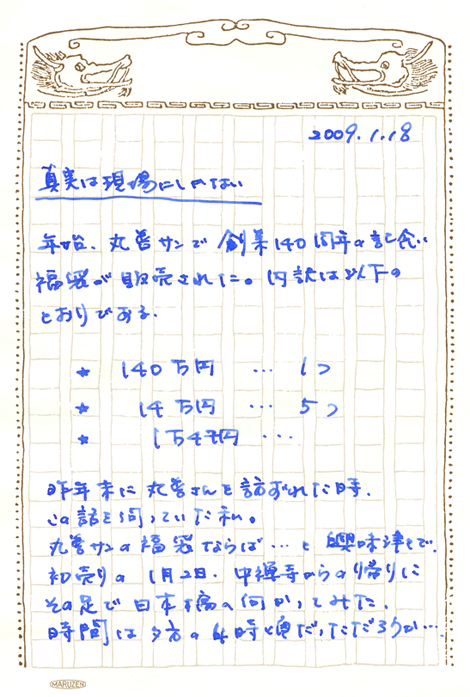 2009.1.18
真実は現場にしかない
年始、丸善サンで創業140周年の記念
福袋が販売された。内訳は以下の
とおりである.
★ 140万円 … 1つ
★ 14万円 … 5つ
★ 1万4千円 …
昨年末に丸善さんを訪ずれた時、
この話を伺っていた私。
丸善サンの福袋ならば…と興味津々で.
初売りの1月2日、中禅寺からの帰りに
その足で日本橋へ向かってみた.
時間は夕方の4時頃だっただろうか…
MARUZEN